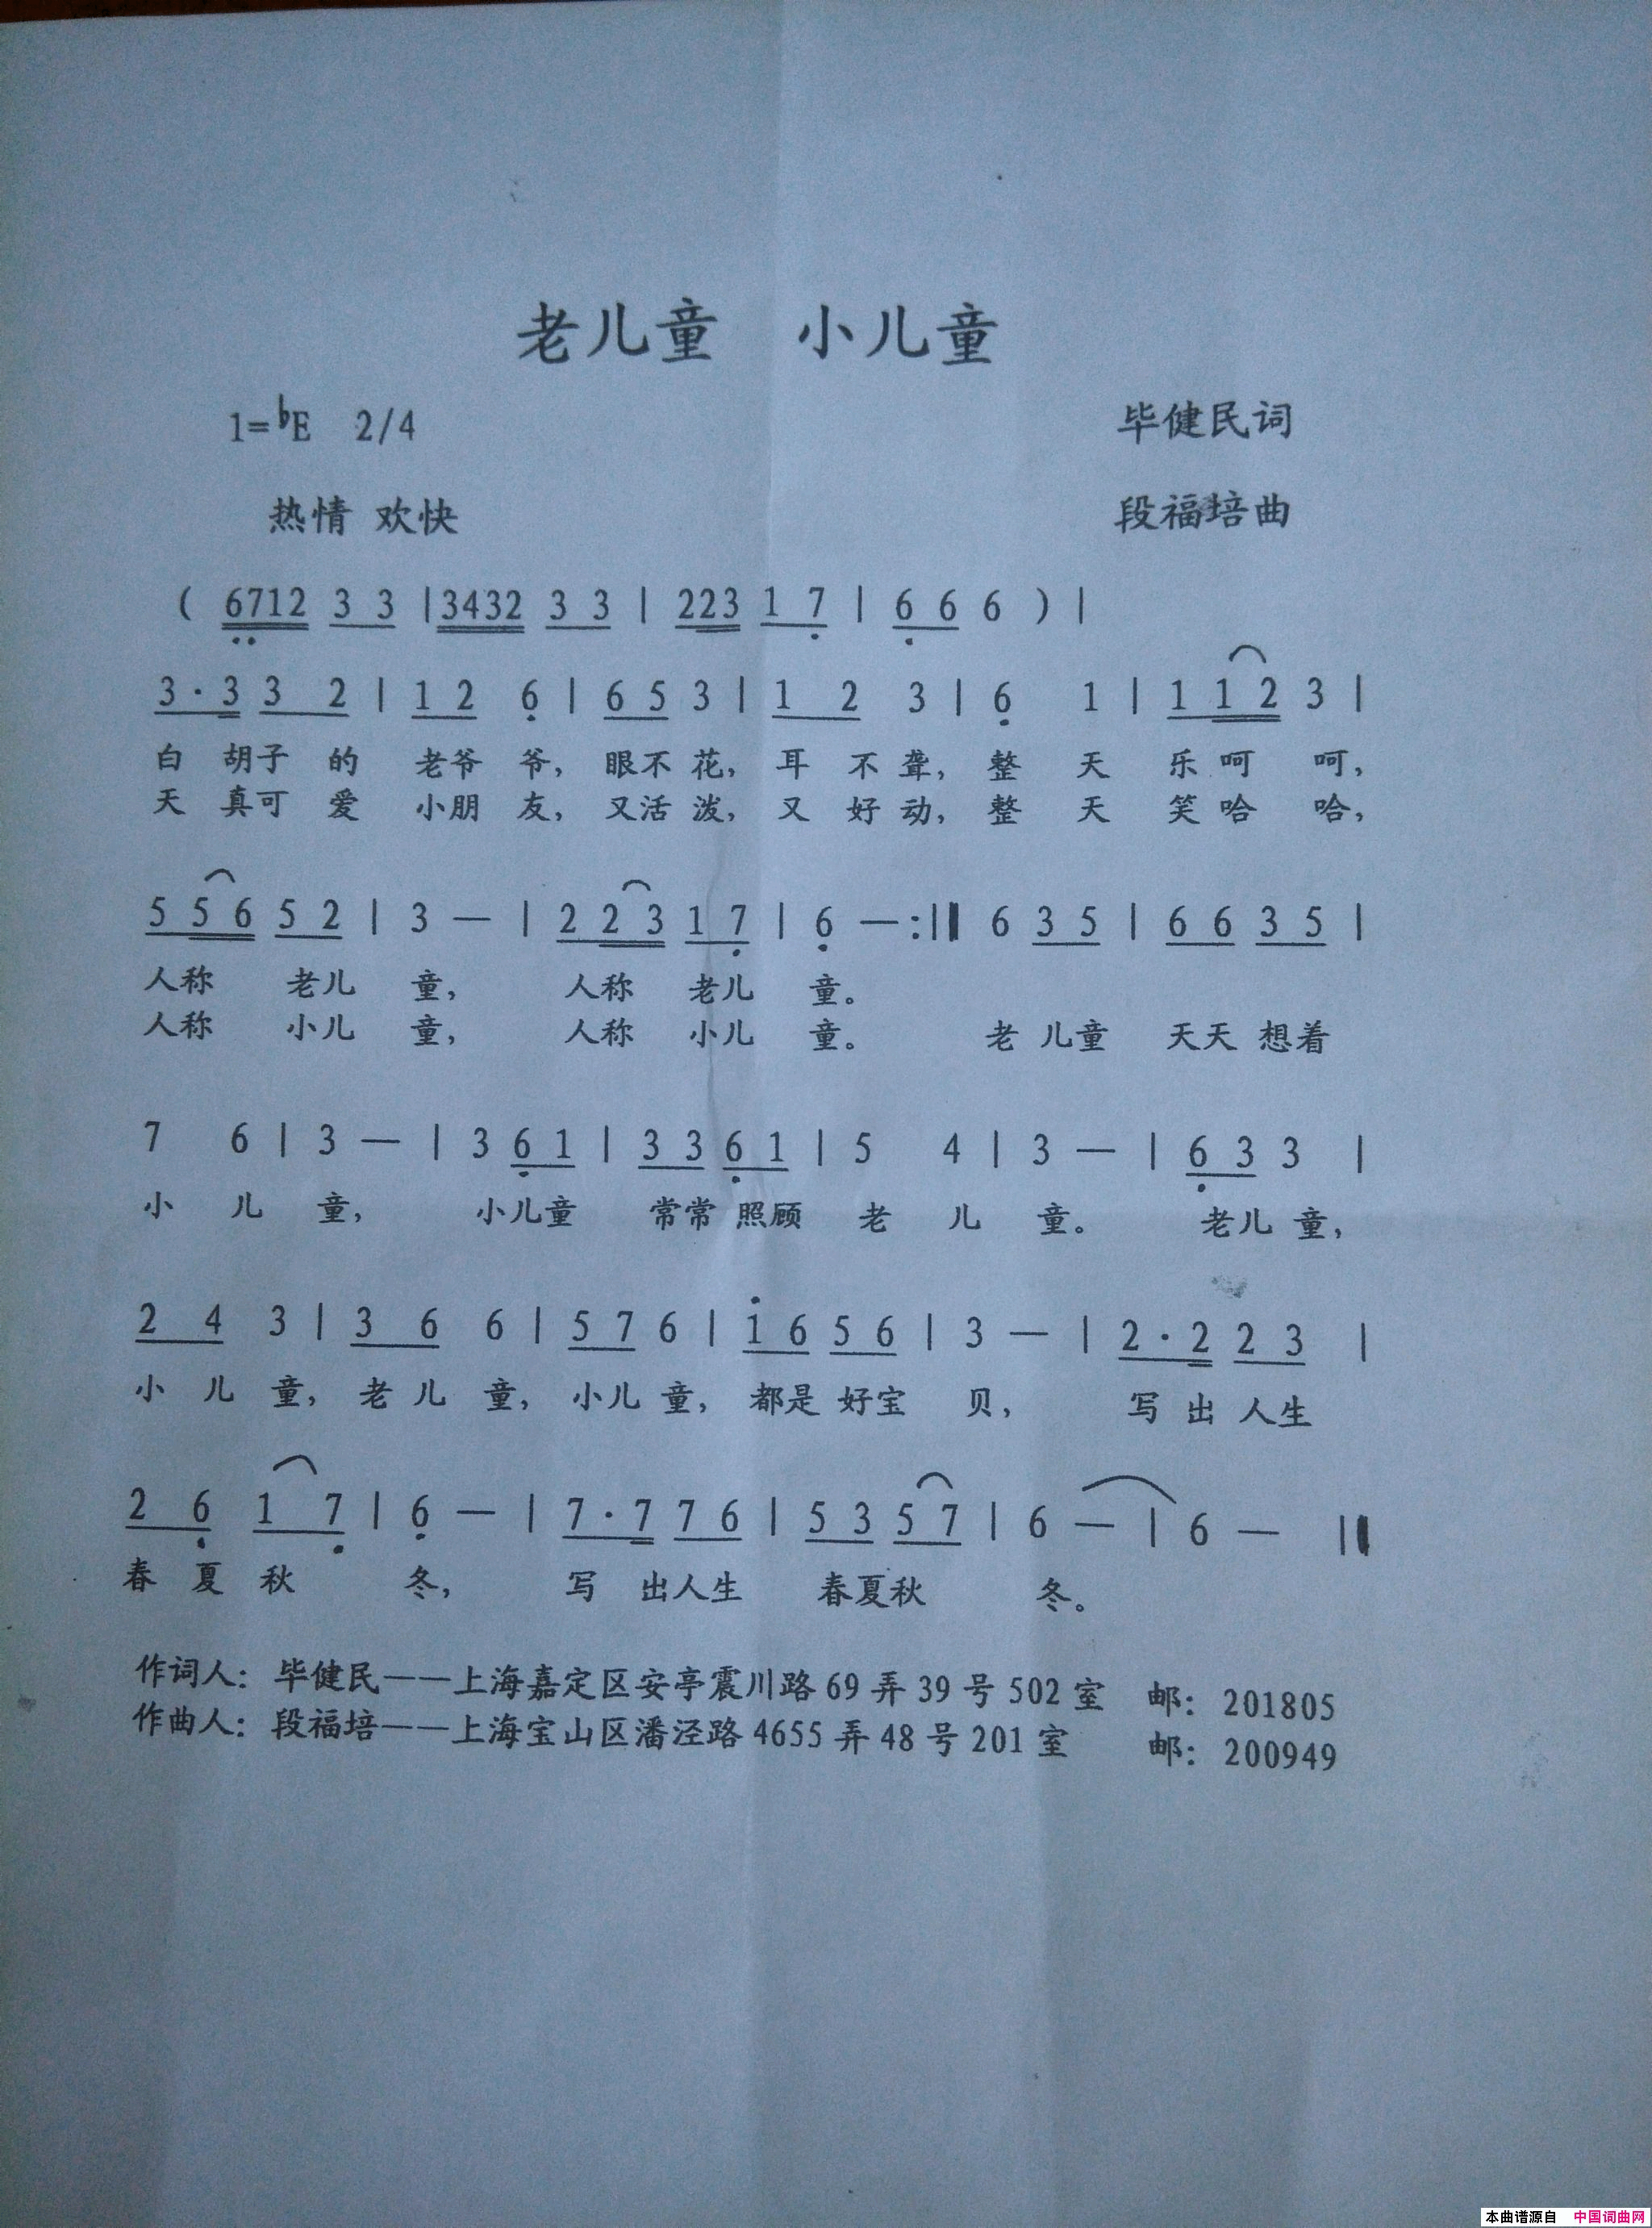 老儿童 小儿童
1=♭E 2/4 毕健民词
热情 欢快 段福培曲
( 6712 3 3 | 3432 3 3 | 223 1 7 | 6 6 6 ) |
3·3 3 2 | 1 2 6 | 6 5 3 | 1 2 3 | 6 1 | 1 1 2 3 |
白 胡子 的 老爷 爷, 眼不 花, 耳 不 聋, 整 天 乐 呵 呵,
天 真可 爱 小朋 友, 又活 泼, 又 好 动, 整 天 笑 哈 哈,
5 5 6 5 2 | 3 — | 2 2 3 1 7 | 6 —:‖ 6 3 5 | 6 6 3 5 |
人称 老儿 童, 人称 老儿 童。
人称 小儿 童, 人称 小儿 童。 老 儿童 天天 想着
7 6 | 3 — | 3 6 1 | 3 3 6 1 | 5 4 | 3 — | 6 3 3 |
小 儿 童, 小儿童 常常 照顾 老 儿 童。 老儿 童,
2 4 3 | 3 6 6 | 5 7 6 | 1 6 5 6 | 3 — | 2·2 2 3 |
小 儿 童, 老 儿 童, 小儿 童, 都是 好宝 贝, 写 出 人生
2 6 1 7 | 6 — | 7·7 7 6 | 5 3 5 7 | 6 — | 6 — ‖
春 夏 秋 冬, 写 出人生 春夏秋 冬。
作词人: 毕健民——上海嘉定区安亭震川路 69 弄 39 号 502 室 邮: 201805
作曲人: 段福培——上海宝山区潘泾路 4655 弄 48 号 201 室 邮: 200949
本曲谱源自 中国词曲网